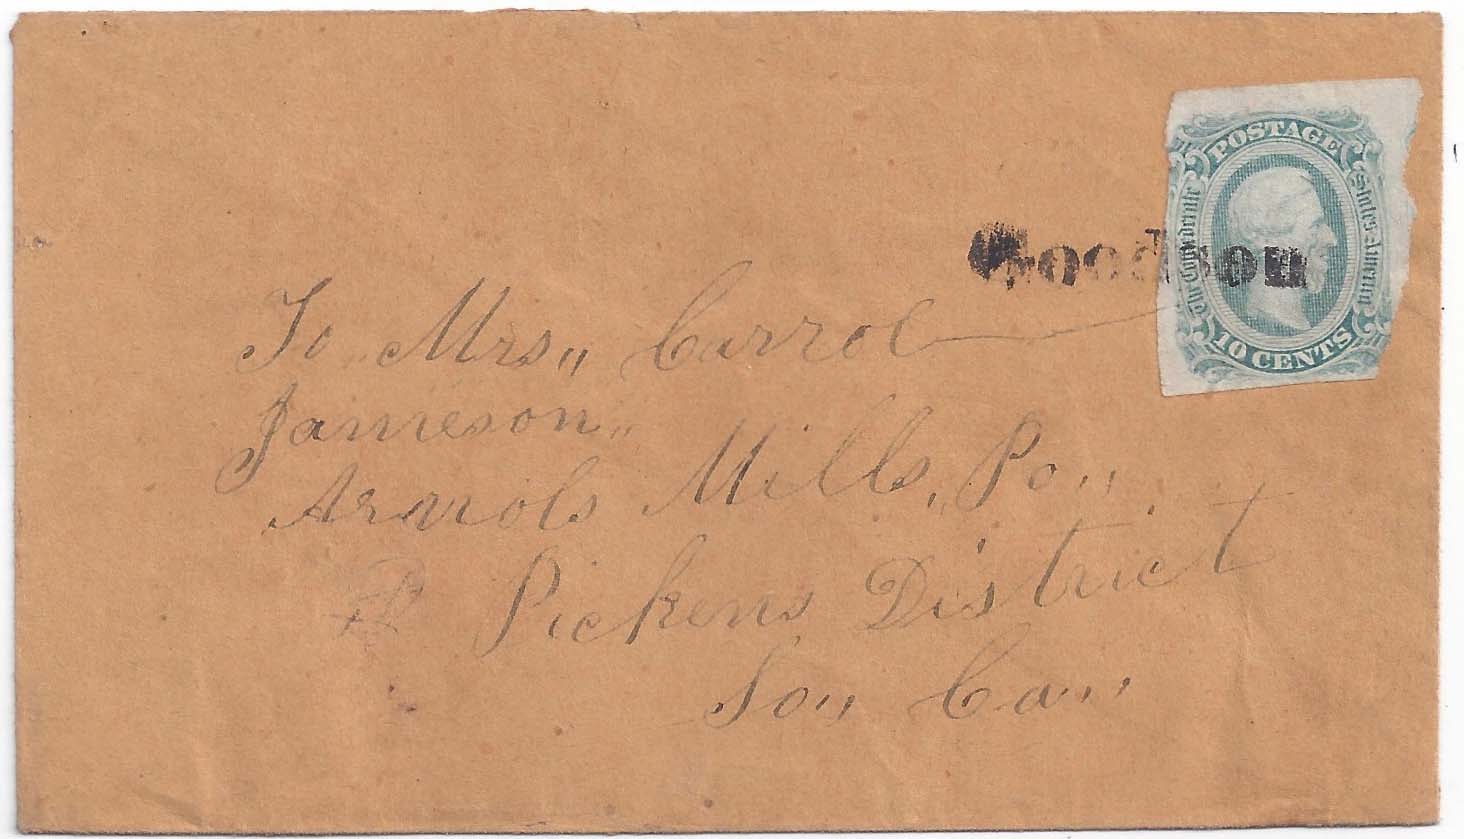 POSTAGE
The Confederate States of America
10 CENTS
Goodson
To Mrs,, Carrol
Jameson,,
Arnols Mills, Po,,
Pickens District
So,, Ca,,